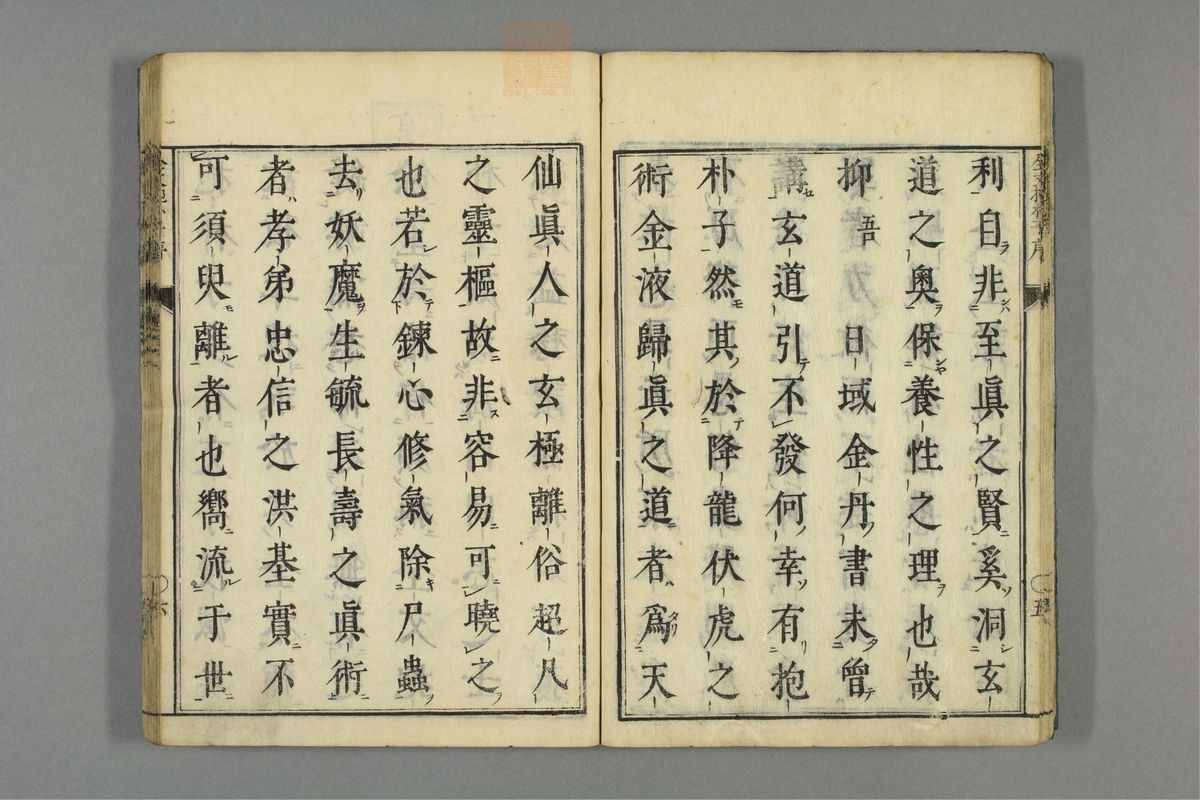 利自非至眞之賢奚洞玄
道之奧保養性之理也哉
抑吾日域金丹書未曾
講玄道引不發何幸有抱
朴子然其於降龍伏虎之
術金液歸眞之道者爲天
仙眞人之玄極離俗超凡
之靈樞故非容易可曉之
也若於鍊心修氣除尸蟲
去妖魔生毓長壽之眞術
者孝弟忠信之洪基實不
可須臾離者也嚮流于世